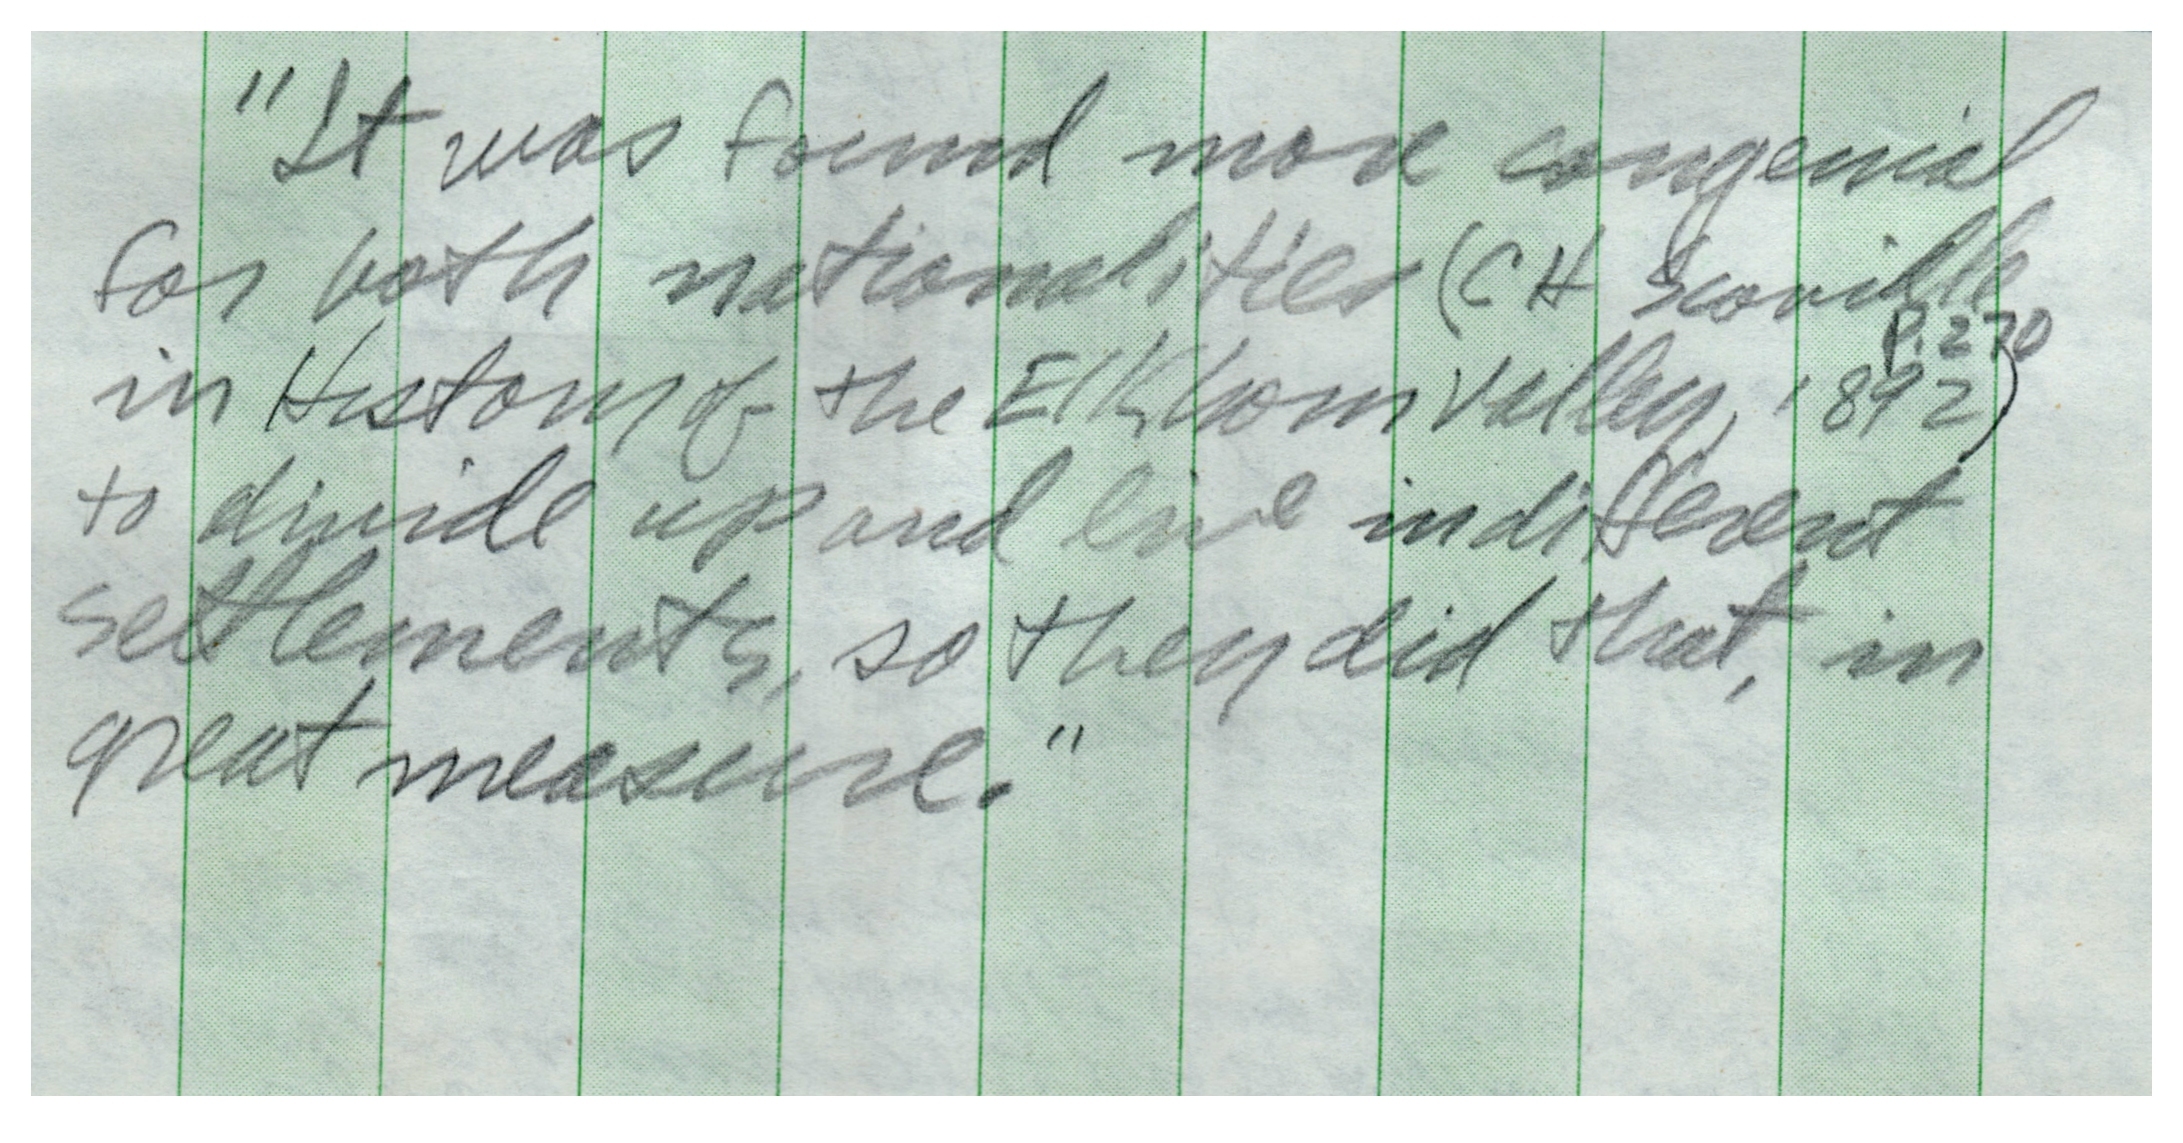 "It was found more congenial
for both nationalities (CH Scoville
in History of the Elkhorn Valley, 1892) P. 270
to divide up and live in different
settlements, so they did that, in
great measure."